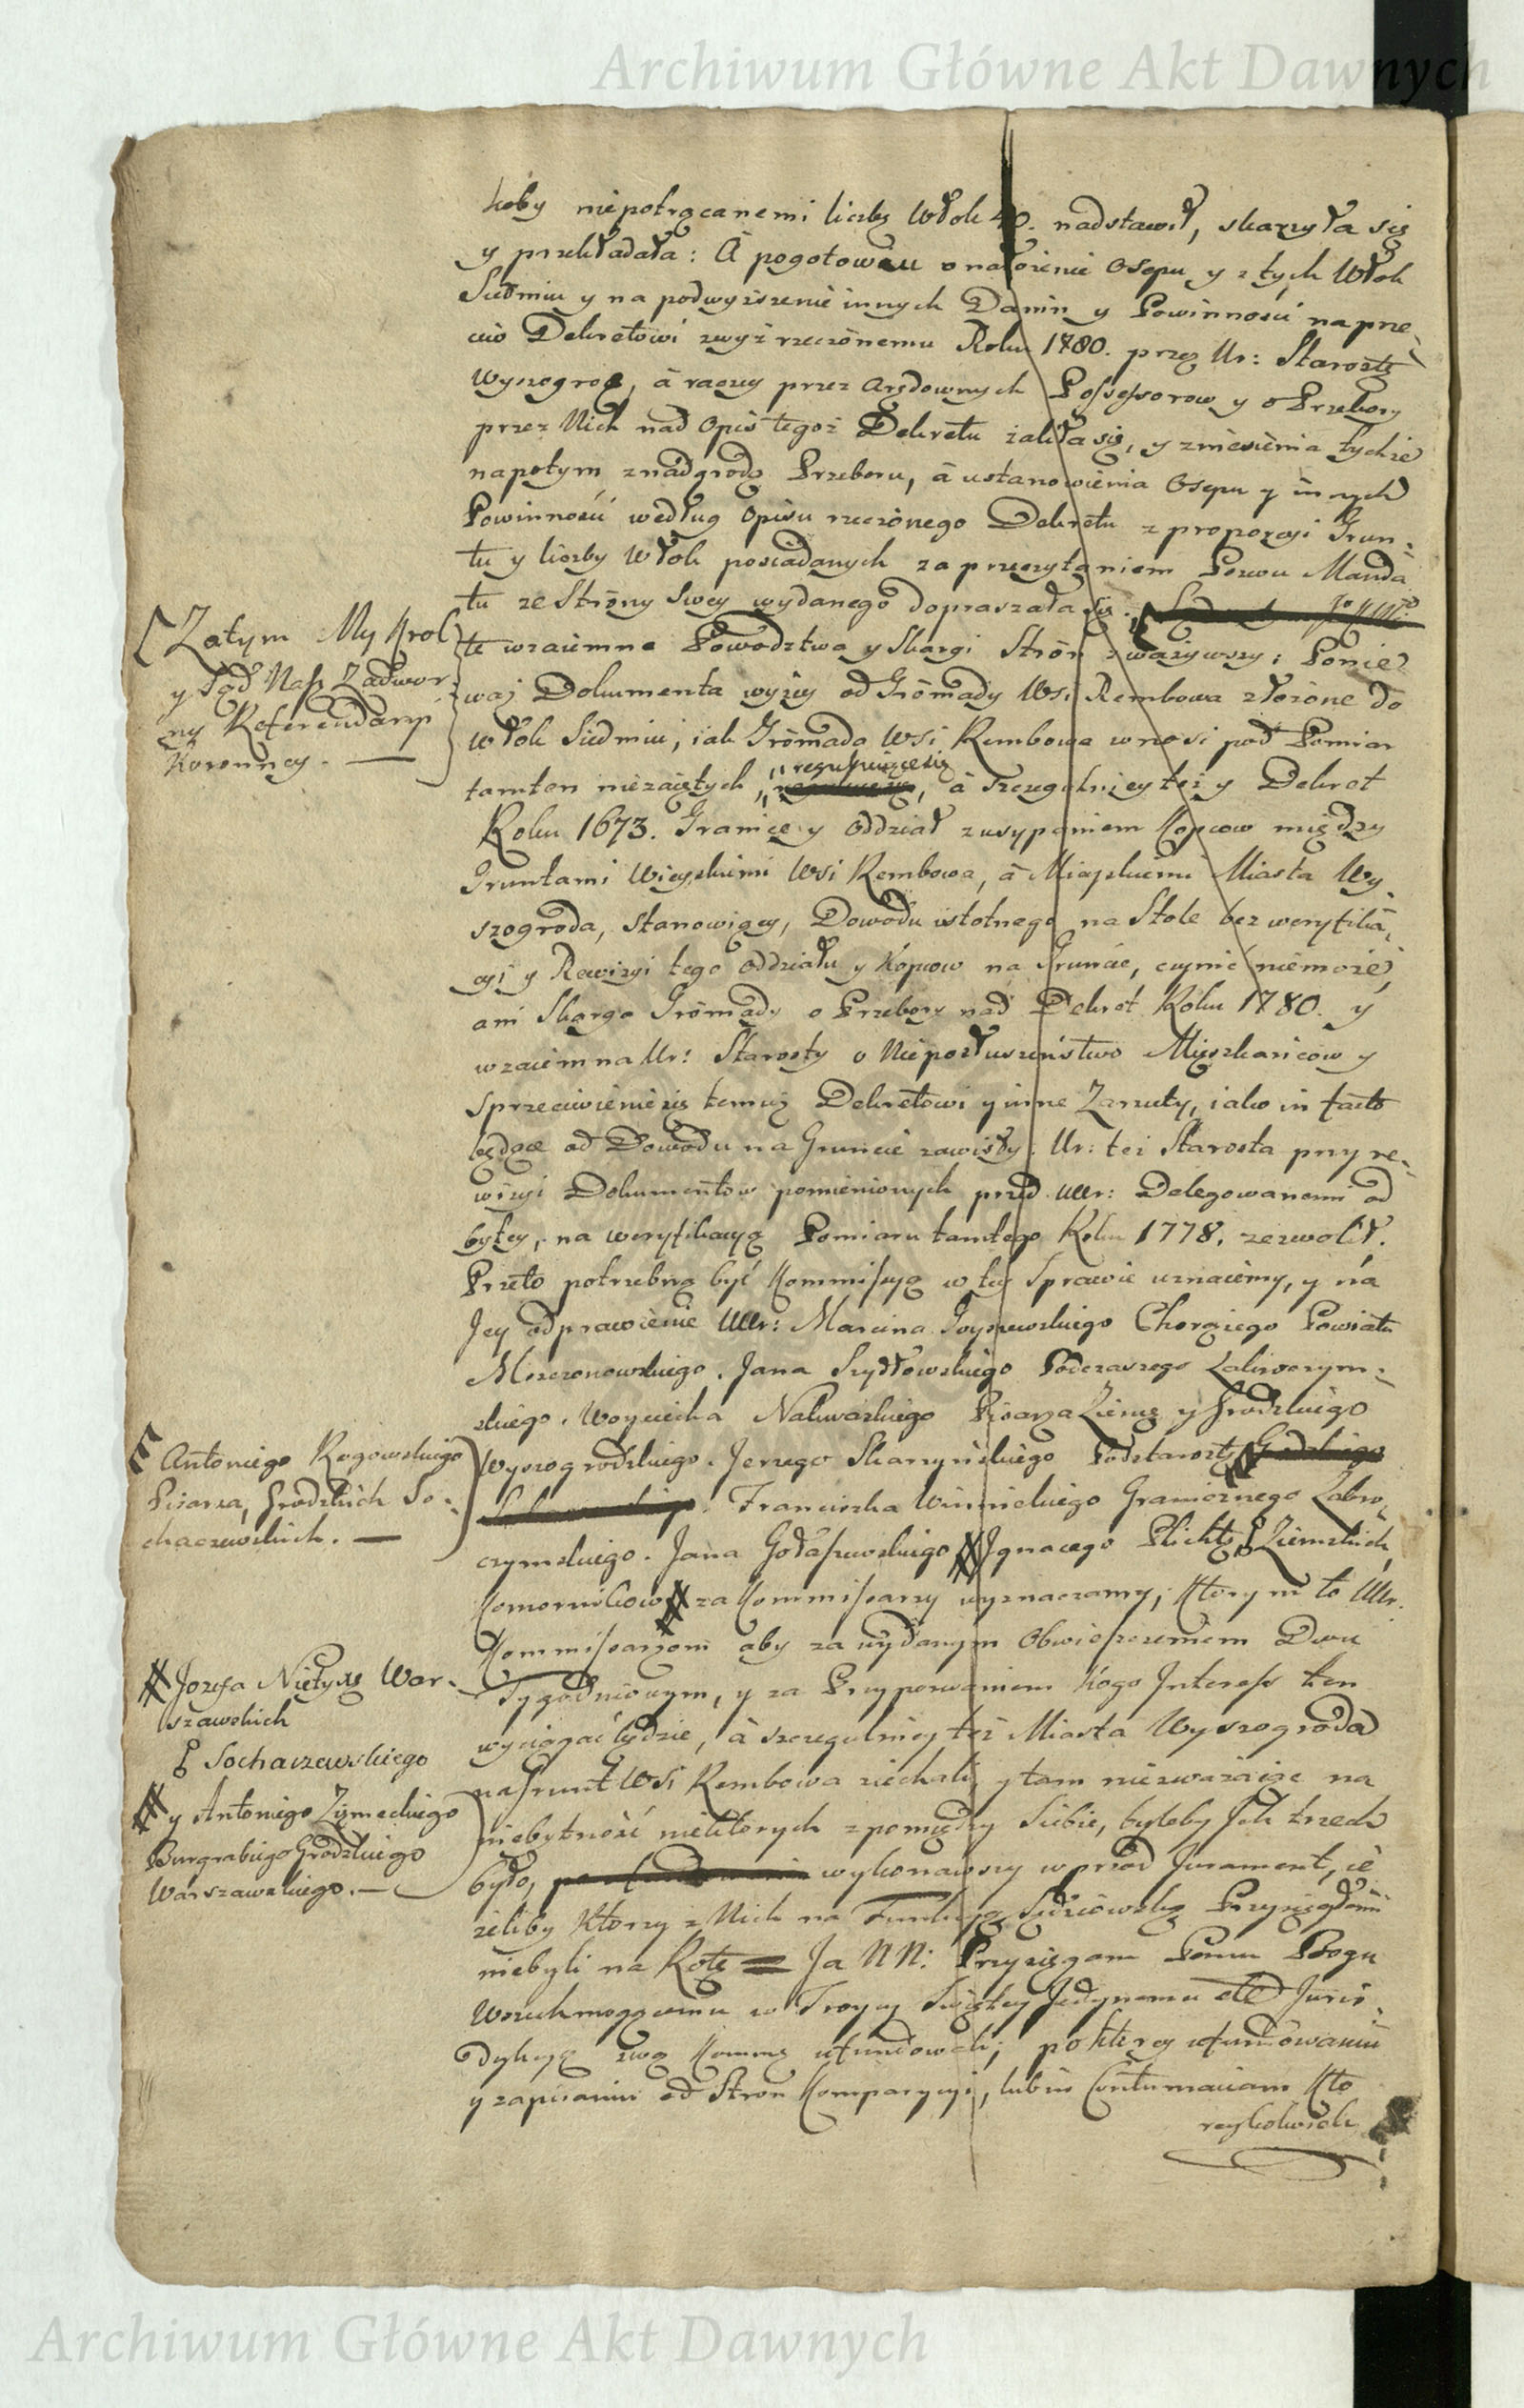 Archiwum Główne Akt Dawnych
koby niepotrącanemi liczbę Włok 40. nadstawił, skarzyła się
y przekładała: à pogotowiu o nałożenie Osepu y z tych Włok
Siedmiu y na podwyższenie innych Danin y Powinności naprze-
ciw Dekretowi zwyż rzeczonemu Roku 1780. przez Ur: Starostę
Wyszogrod, à raczey przez Arędownych Possessorow y o Przebory
przez Nich nad Opis tegoż Dekretu żaliła się, y zniesienia tychże
napotym z nadgrodą Przeboru, à ustanowienia Osepu y innych
Powinności według Opisu rzeczonego Dekretu z proporcyi Grun-
tu y liczby Włok posiadanych za przeczytaniem Pozwu Manda
tu ze Strony Swey wydanego dopraszała się.
[Zatym My Krol
y Sąd Nasz Zadwor-
ny Referendaryi
Koronney. —
te wzaiemne Powodztwa y Skargi Stron zważywszy; Ponie
waż Dokumenta wyżey od Gromady Wsi Rembowa złożone do
włok Siedmiu, iak Gromada Wsi Rembowa wnosi pod Pomiar
tamten niezaiętych,
à szczegulniey też y Dekret
Roku 1673. Granice y Oddział z usypaniem Kopcow między
Gruntami Wieyskiemi Wsi Rembowa, à Mieyskiemi Miasta Wy-
szogroda, stanowiący, Dowodu istotnego na Stole bez weryfika-
cyi y Rewizyi tego Oddziału y Kopcow na Gruncie, czynić niemoże,
ani Skarga Gromady o Przebory nad Dekret Roku 1780. y
wzaiemna Ur: Starosty o Nieposłuszeństwo Mieszkańcow y
Sprzeciwienie się temuż Dekretowi y inne Zarzuty, iako in facto
będące od Dowodu na Gruncie zawisły. Ur: też Starosta przy re-
wizyi Dokumentow pomienionych przed Ur: Delegowanemi od
bytey, na weryfikacyą Pomiaru tamtego Roku 1778. zezwolił.
Przeto potrzebną być Kommissyą w tey Sprawie uznaiemy, y na
Jey odprawienie Ur: Marcina Goyszewskiego Chorążego Powiatu
Mszczonowskiego. Jana Szydłowskiego Podczaszego Zakroczym-
skiego. Woyciecha Nakwaskiego Pisarza Ziems y Grodzkiego
Wyszogrodzkiego. Jerzego Skarzyńskiego Podstarostę
[Antoniego Rogowskiego
Pisarza Grodzkich So-
chaczewskich. —
Franciszka Winnickiego Granicznego Zakro-
czymskiego. Jana Gołaszewskiego Ignacego Plichtę Ziemskich
Komornikow za Kommissarzy wyznaczamy; Ktorym to Ur.
Kommissarzom aby za wydanym Obwieszczeniem Dwu
Jozefa Nietyxę War-
szawskich
Sochaczewskiego
y Antoniego Zęmeckiego
Burgrabiego Grodzkiego
Warszawskiego. —
Tygodniowym, y za Przypozwaniem Kogo Interess ten
wyciągać będzie, à szczegulniey też Miasta Wyszogroda
na Grunt Wsi Rembowa ziechali, y tam niezważaiąc na
niebytność niektorych z pomiędzy Siebie, byleby Ich trzech
było, wykonawszy wprzod Jurament, ie
żeliby Ktorzy z Nich na Funkcyą Sędziowską Przysięgłemi
niebyli na Rotę = Ja NN: Przysięgam Panu Bogu
Wszechmogącemu w Troycy Swiętey Jedynemu etc. Juris-
dykcyą swą Kommą ufundowali; po ktorey ufundowaniu
y zapisaniu od Stron Komparycyi, lub in Contumaciam Kto
reykolwiek
Archiwum Główne Akt Dawnych